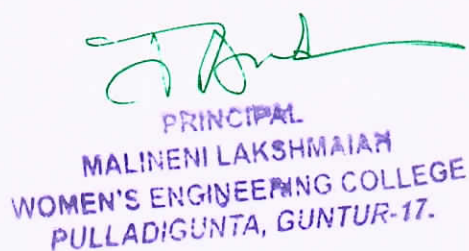 PRINCIPAL
MALINENI LAKSHMAIAH
WOMEN'S ENGINEERING COLLEGE
PULLADIGUNTA, GUNTUR-17.